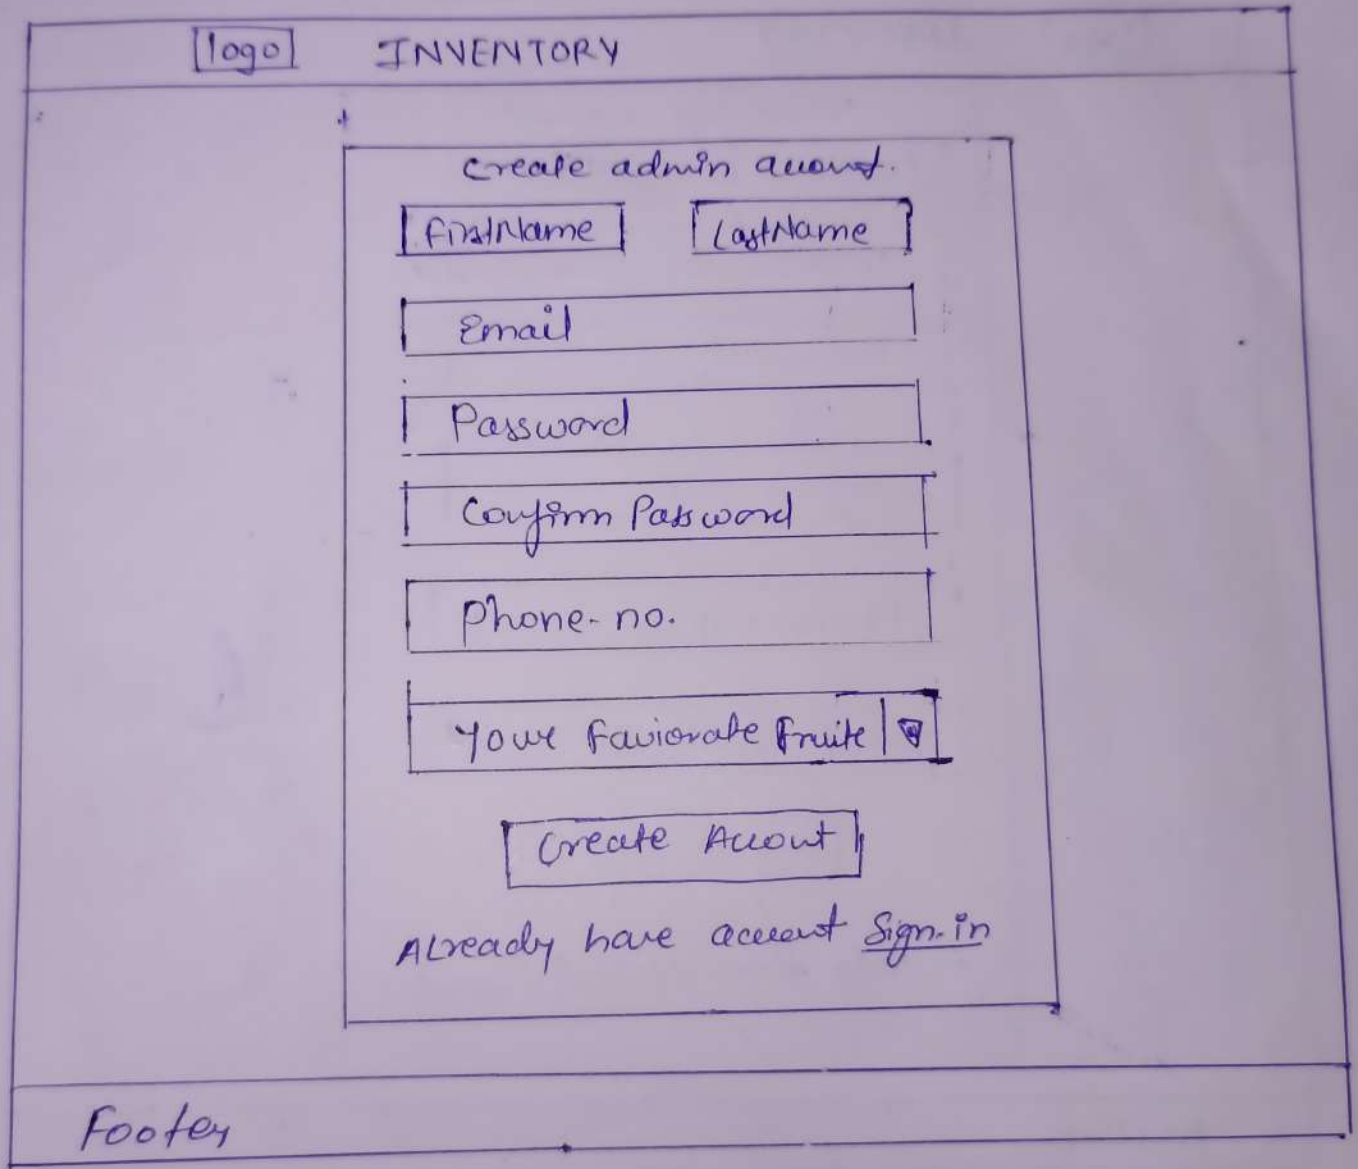 logo INVENTORY
Create admin account.
FirstName LastName
Email
Password
Confirm Password
Phone-no.
Your Faviorate Fruite
Create Account
Already have account Sign-in
Footer